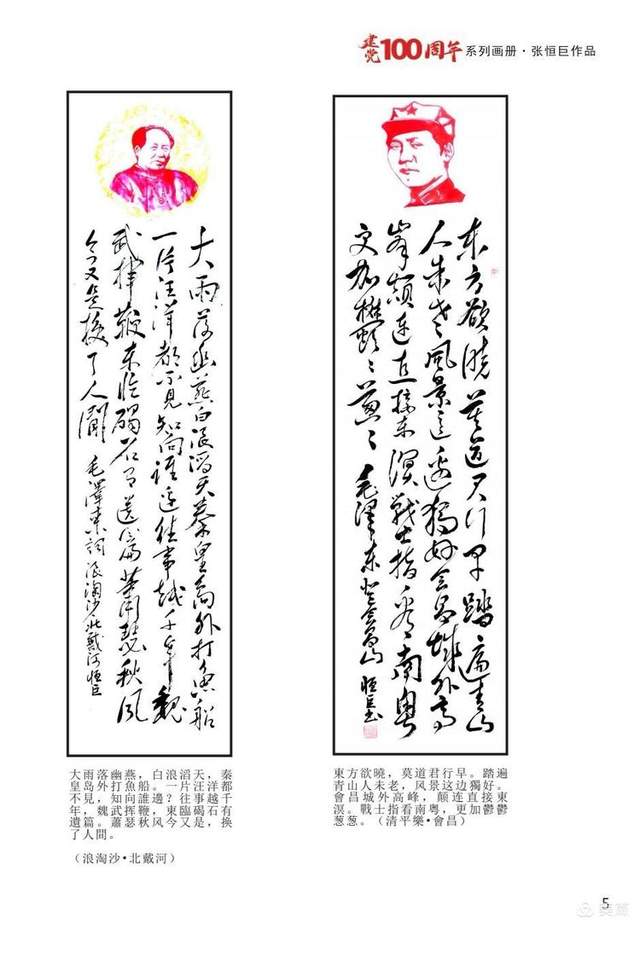 建党100周年系列画册·张恒巨作品
大雨落幽燕白浪滔天秦皇島外打魚船
一片汪洋都不見知向誰邊往事越千年魏
武揮鞭東临碣石有遺篇蕭瑟秋風
今又是换了人間 毛澤東詞浪淘沙北戴河恒巨
东方欲晓莫道君行早踏遍青山
人未老风景这边獨好会昌城外高
峯颠连直接东溟战士指看看南粤
更加鬱鬱葱葱 毛澤东登会昌山 恒巨书
大雨落幽燕，白浪滔天，秦
皇岛外打魚船。一片汪洋都
不見，知向誰邊？往事越千
年，魏武挥鞭，東臨碣石有
遺篇。蕭瑟秋风今又是，換
了人間。
（浪淘沙·北戴河）
東方欲曉，莫道君行早。踏遍
青山人未老，风景这边獨好。
會昌城外高峰，颠连直接東
溟。戰士指看南粤，更加鬱鬱
葱葱。（清平樂·會昌）
5
美篇